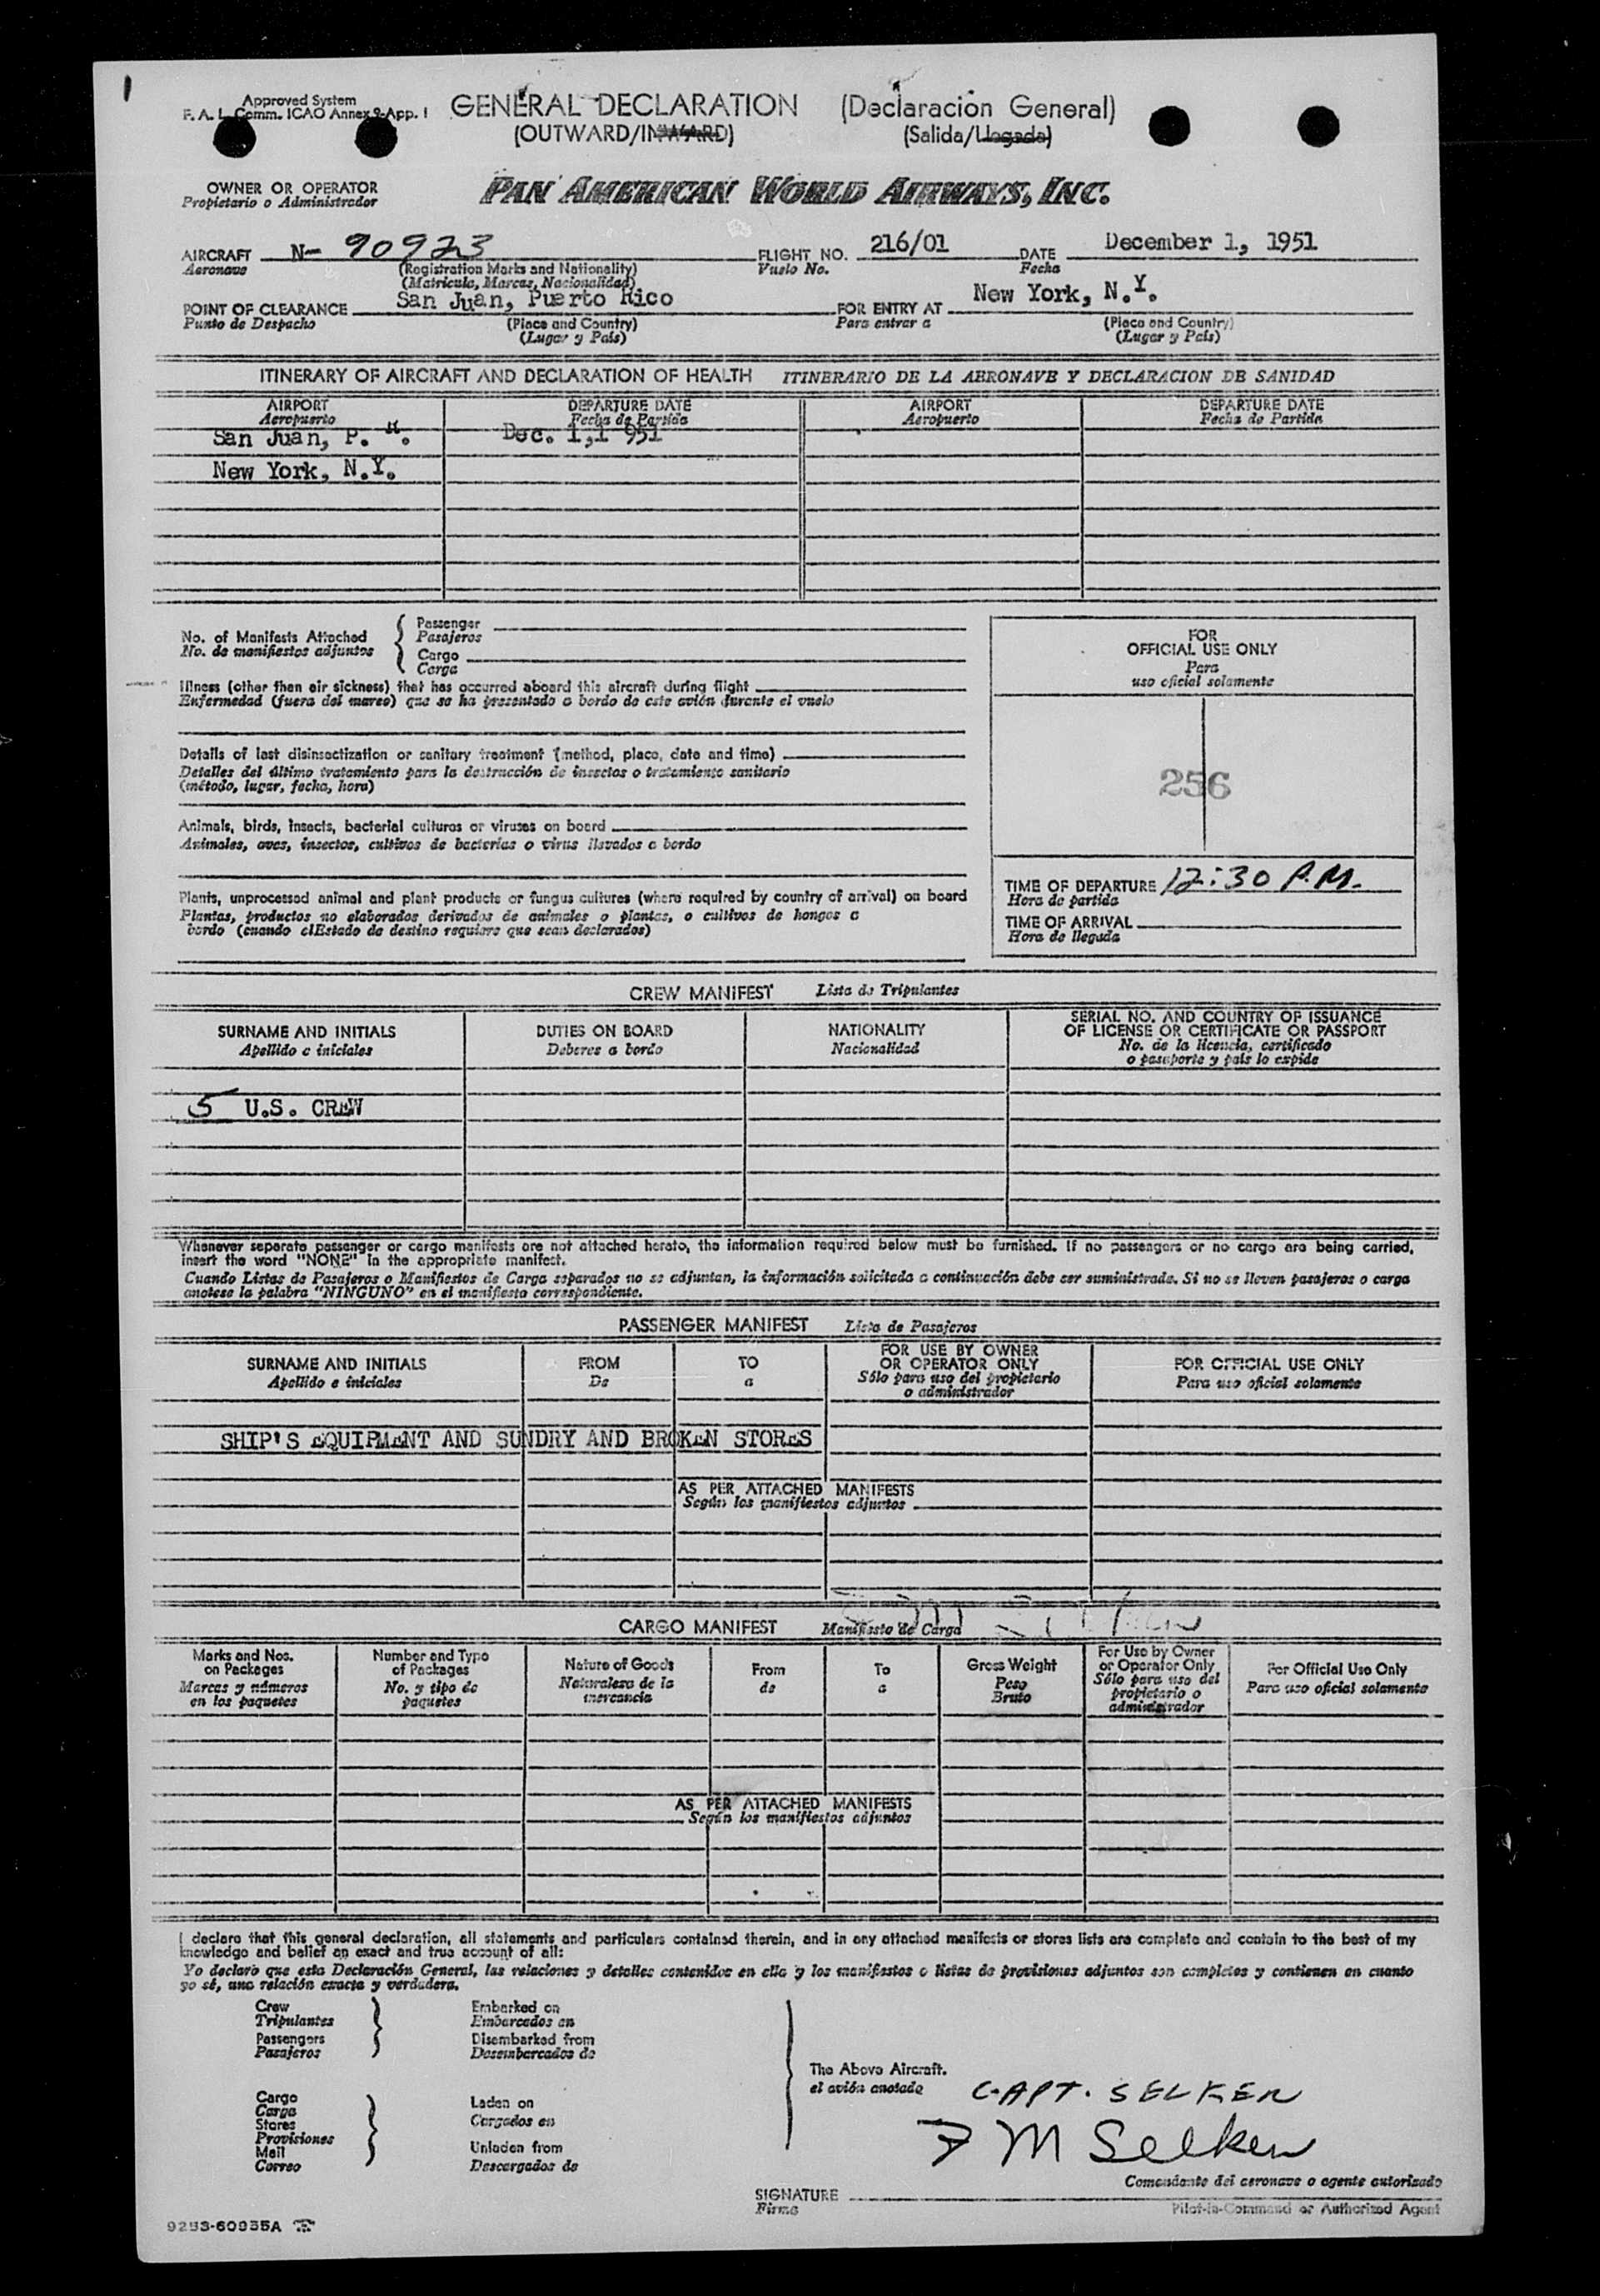 Approved System
F. A. L. Comm. ICAO Annex 9-App. 1
GENERAL DECLARATION (Declaración General)
(OUTWARD/INWARD) (Salida/Llegada)
OWNER OR OPERATOR
Propietario o Administrador
PAN AMERICAN WORLD AIRWAYS, INC.
AIRCRAFT N- 90923 FLIGHT NO. 216/01 DATE December 1, 1951
Aeronave (Registration Marks and Nationality) Vuelo No. Fecha
(Matricula, Marcas, Nacionalidad)
POINT OF CLEARANCE San Juan, Puerto Rico FOR ENTRY AT New York, N.Y.
Punto de Despacho (Place and Country) Para entrar a (Place and Country)
(Lugar y País) (Lugar y País)
ITINERARY OF AIRCRAFT AND DECLARATION OF HEALTH ITINERARIO DE LA AERONAVE Y DECLARACION DE SANIDAD
AIRPORT DEPARTURE DATE AIRPORT DEPARTURE DATE
Aeropuerto Fecha de Partida Aeropuerto Fecha de Partida
San Juan, P. Dec. 1,1 951
New York, N.Y.
No. of Manifests Attached
No. de manifiestos adjuntos
Passenger
Pasajeros
Cargo
Carga
Illness (other than air sickness) that has occurred aboard this aircraft during flight
Enfermedad (fuera del mareo) que se ha presentado a bordo de este avión durante el vuelo
Details of last disinsectization or sanitary treatment (method, place, date and time)
Detalles del último tratamiento para la destrucción de insectos o tratamiento sanitario
(método, lugar, fecha, hora)
Animals, birds, insects, bacterial cultures or viruses on board
Animales, aves, insectos, cultivos de bacterias o virus llevados a bordo
Plants, unprocessed animal and plant products or fungus cultures (where required by country of arrival) on board
Plantas, productos no elaborados derivados de animales o plantas, o cultivos de hongos a
bordo (cuando elEstado de destino requiere que sean declarados)
FOR
OFFICIAL USE ONLY
Para
uso oficial solamente
256
TIME OF DEPARTURE 12:30 P.M.
Hora de partida
TIME OF ARRIVAL
Hora de llegada
CREW MANIFEST Lista de Tripulantes
SURNAME AND INITIALS DUTIES ON BOARD NATIONALITY SERIAL NO. AND COUNTRY OF ISSUANCE
OF LICENSE OR CERTIFICATE OR PASSPORT
Apellido e iniciales Deberes a bordo Nacionalidad No. de la licencia, certificado
o pasaporte y país lo expide
5 U.S. CREW
Whenever separate passenger or cargo manifests are not attached hereto, the information required below must be furnished. If no passengers or no cargo are being carried,
insert the word "NONE" in the appropriate manifest.
Cuando Listas de Pasajeros o Manifiestos de Carga separados no se adjuntan, la información solicitada a continuación debe ser suministrada. Si no se lleven pasajeros o carga
anotese la palabra "NINGUNO" en el manifiesto correspondiente.
PASSENGER MANIFEST Lista de Pasajeros
SURNAME AND INITIALS FROM TO FOR USE BY OWNER
OR OPERATOR ONLY FOR OFFICIAL USE ONLY
Apellido e iniciales De a Sólo para uso del propietario
o administrador Para uso oficial solamente
SHIP'S EQUIPMENT AND SUNDRY AND BROKEN STORES
AS PER ATTACHED MANIFESTS
Según los manifiestos adjuntos
CARGO MANIFEST Manifiesto de Carga
Marks and Nos.
on Packages
Marcas y números
en los paquetes
Number and Type
of Packages
No. y tipo de
paquetes
Nature of Goods
Naturaleza de la
mercancia
From
de
To
a
Gross Weight
Peso
Bruto
For Use by Owner
or Operator Only
Sólo para uso del
propietario o
administrador
For Official Use Only
Para uso oficial solamente
AS PER ATTACHED MANIFESTS
Según los manifiestos adjuntos
I declare that this general declaration, all statements and particulars contained therein, and in any attached manifests or stores lists are complete and contain to the best of my
knowledge and belief an exact and true account of all:
Yo declaro que esta Declaración General, las relaciones y detalles contenidos en ella y los manifiestos o listas de provisiones adjuntos son completos y contienen en cuanto
yo sé, una relación exacta y verdadera.
Crew
Tripulantes
Passengers
Pasajeros
Embarked on
Embarcados en
Disembarked from
Desembarcados de
Cargo
Carga
Stores
Provisiones
Mail
Correo
Laden on
Cargados en
Unladen from
Descargados de
The Above Aircraft.
el avión anotado
CAPT. SELKEN
F M Selken
Comandante del aeronave o agente autorizado
SIGNATURE
Firma
Pilot-in-Command or Authorized Agent
9253-60935A